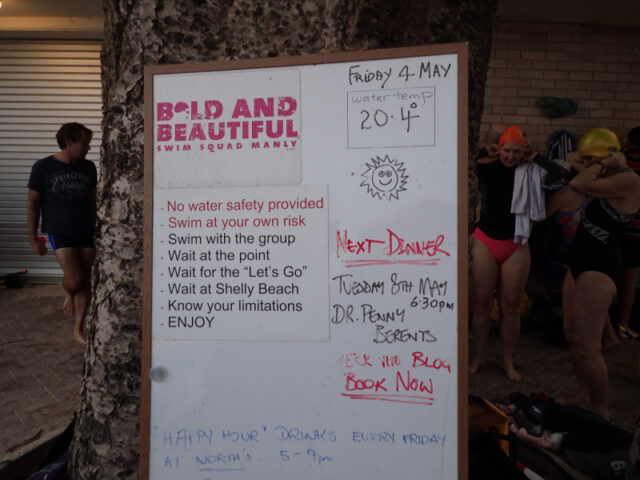 BOLD AND
BEAUTIFUL
SWIM SQUAD MANLY
FRIDAY 4 MAY
water temp
20.4°
- No water safety provided
- Swim at your own risk
- Swim with the group
- Wait at the point
- Wait for the "Let's Go"
- Wait at Shelly Beach
- Know your limitations
- ENJOY
NEXT DINNER
TUESDAY 8TH MAY
6:30pm
DR. PENNY
BERENTS
THE BLOG
BOOK NOW
"HAPPY HOUR" DRINKS EVERY FRIDAY
AT NORTH'S. 5-7pm